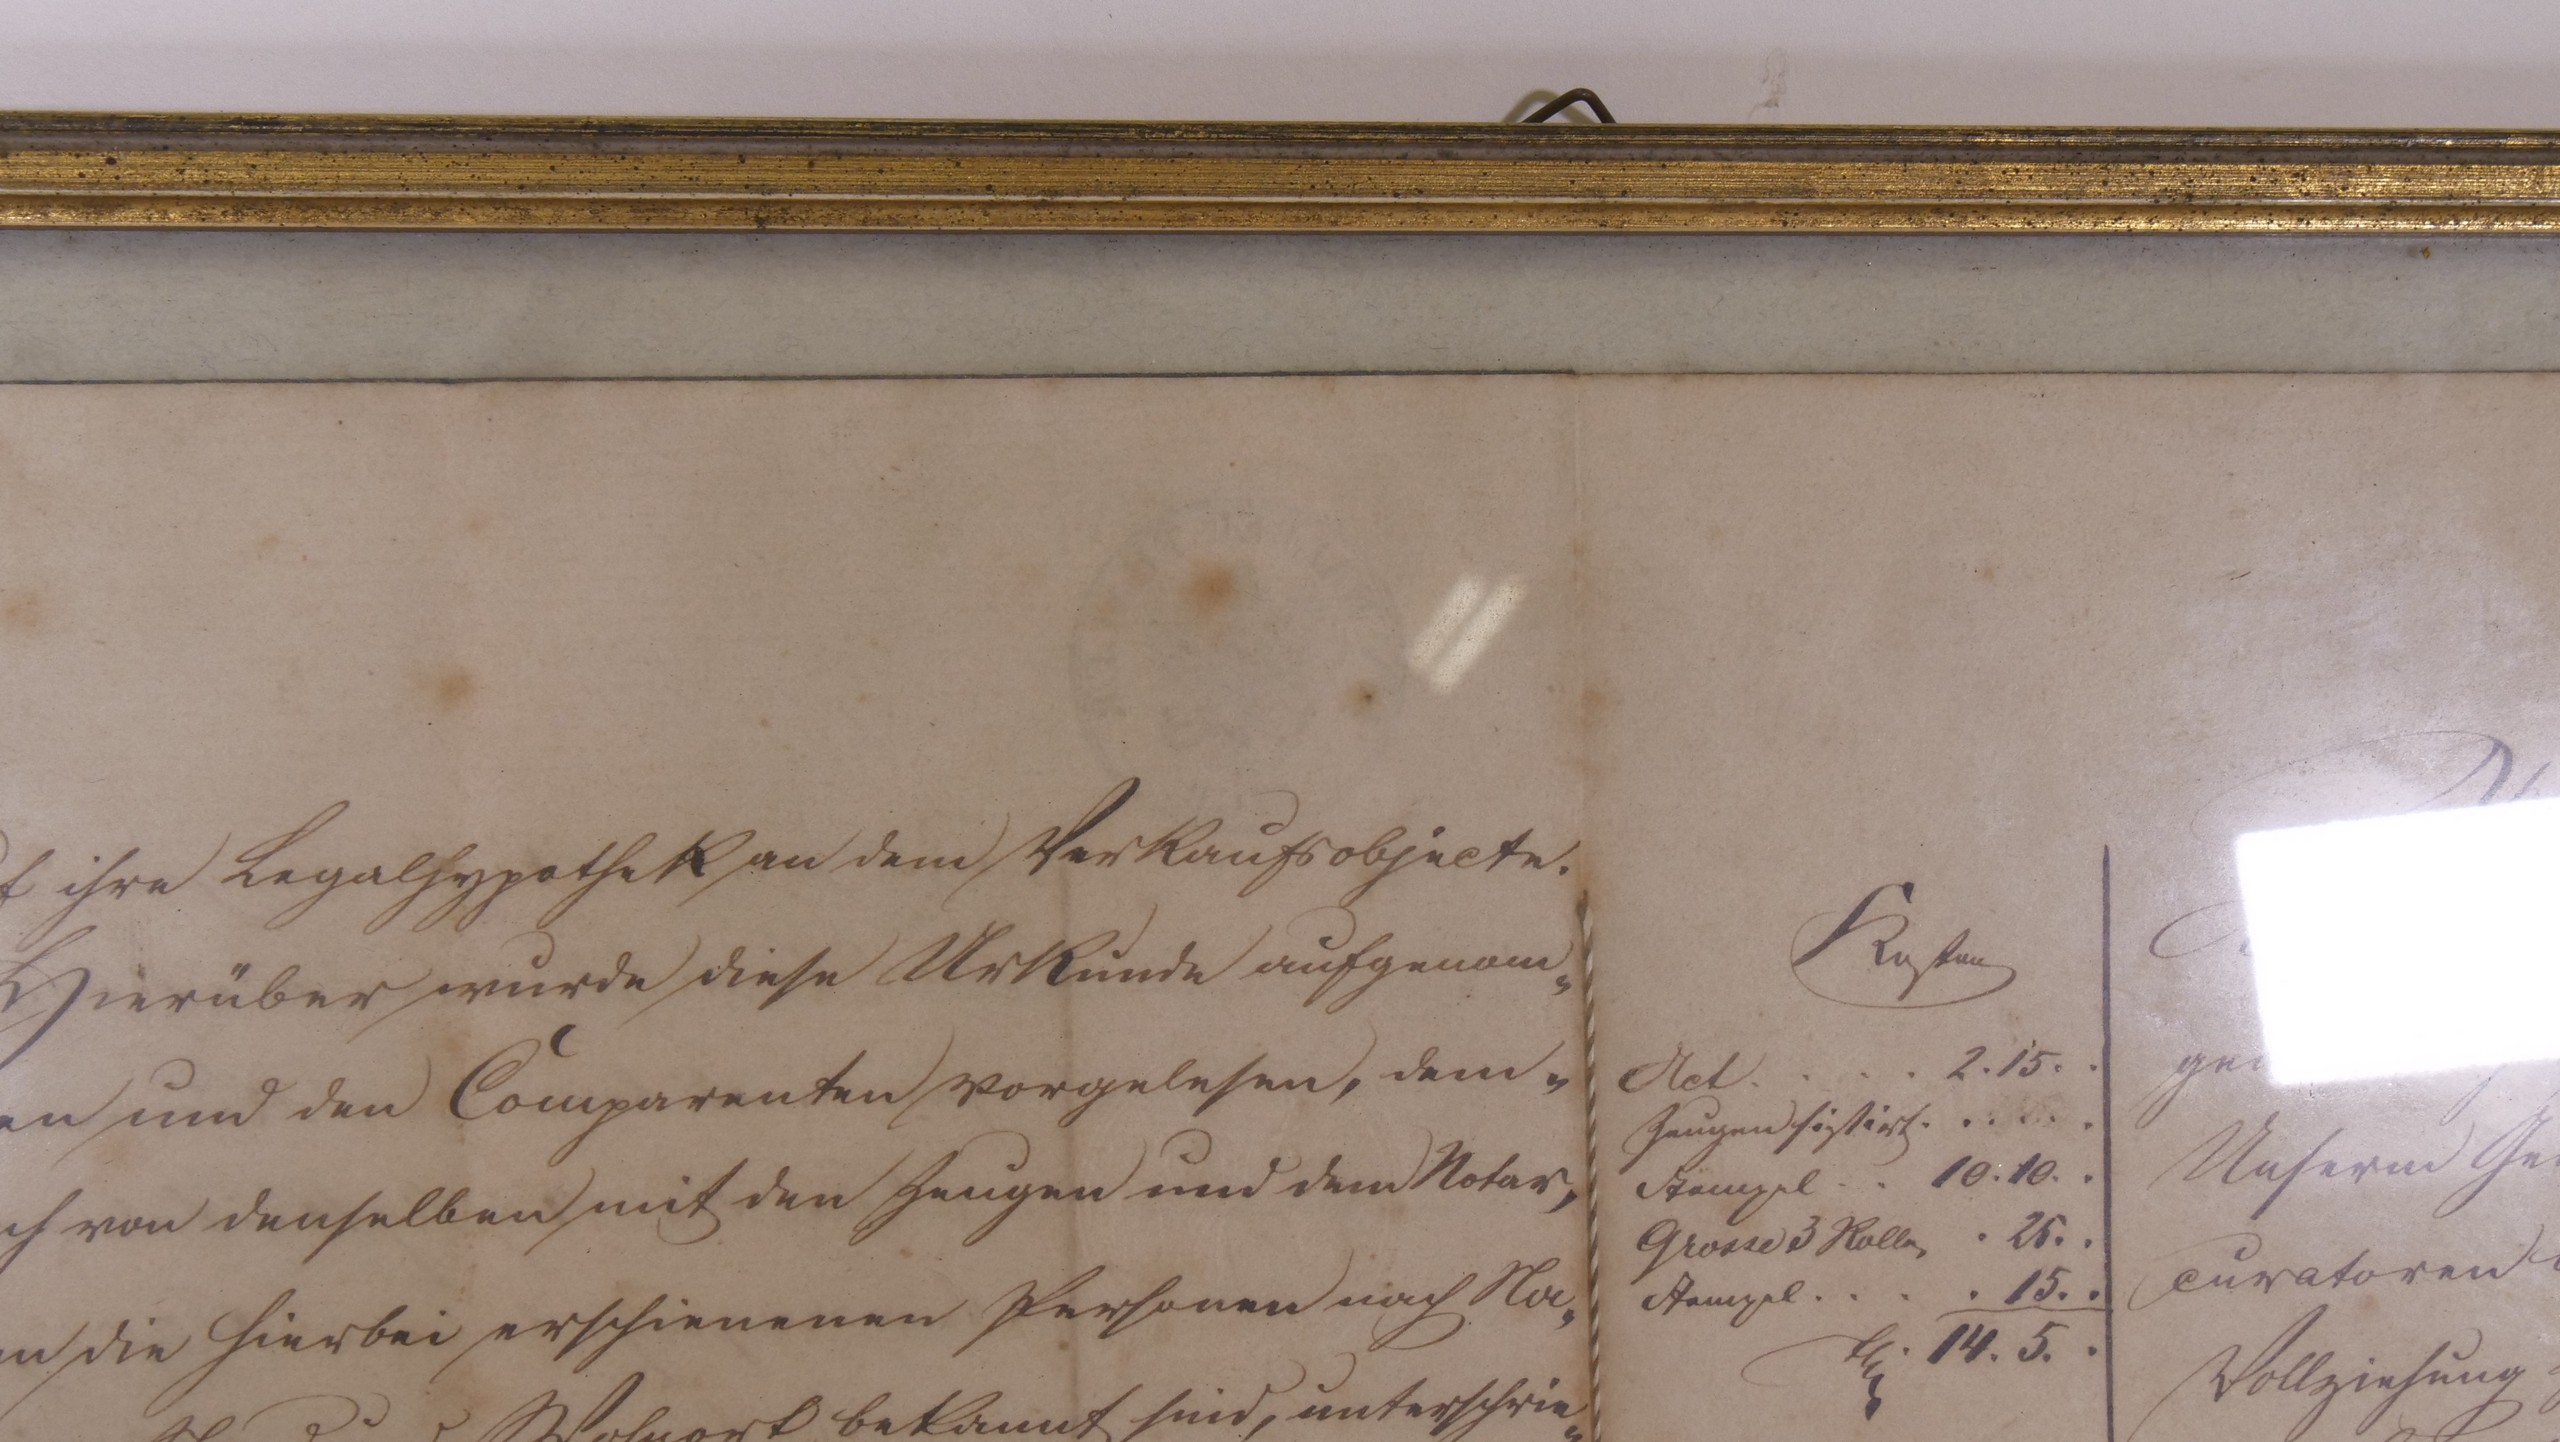 ihre Legalhypothek an dem Verkaufsobjecte.
Hierüber wurde diese Urkunde aufgenom„
en und den Comparenten vorgelesen, dem„
ch von denselben mit den Zeugen und dem Notar,
die hierbei erschienenen Personen nach Na„
Wohnort bekannt sind, unterschrie„
Kosten
Act . . . . 2. 15. .
Zeugen sistirt. . . . .
Stempel . . 10. 10. .
Grosse 3 Rollen . 25. .
Stempel . . . . 15. .
14. 5. .
Unserm
curatoren
Vollziehung